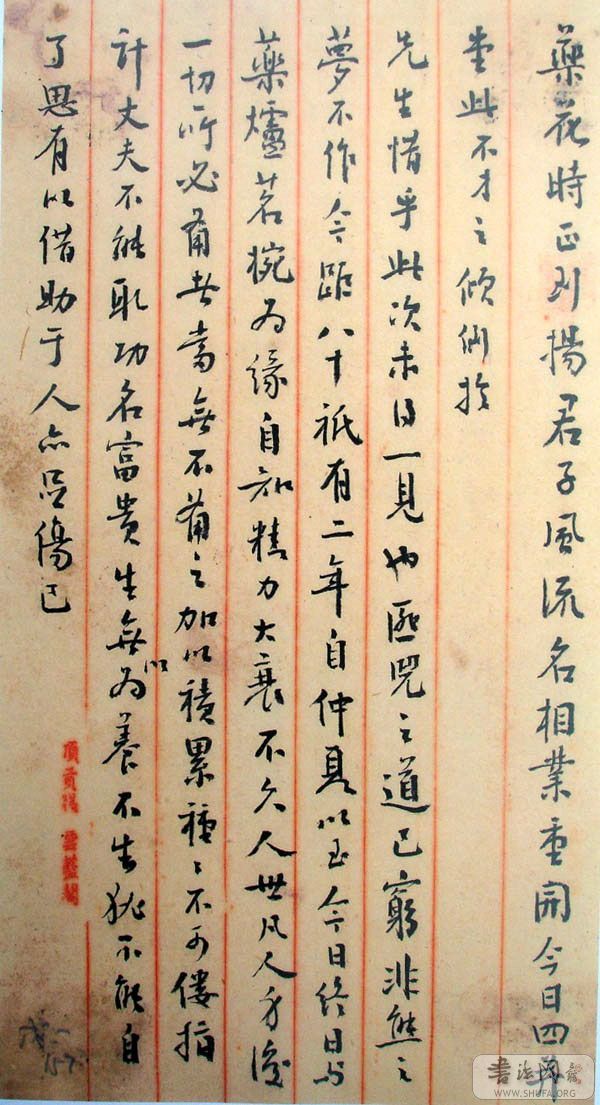 藥花時正到揚君子風流名相業重開今日四并
堂此不才之傾倒於
先生惜乎此次未得一見也匪兕之道已窮非熊之
夢不作今距八十祇有二年自仲夏以至今日終日與
藥爐茗椀為緣自知精力大衰不久人世凡人身後
一切所必需者當無不需之加以積累種種不可僂指
計丈夫不能取功名富貴生無以為養不生猶不能自
了思有以借助于人亦足傷已
頂貢箋 雲藍閣
書法網
WWW.SHUFA.ORG